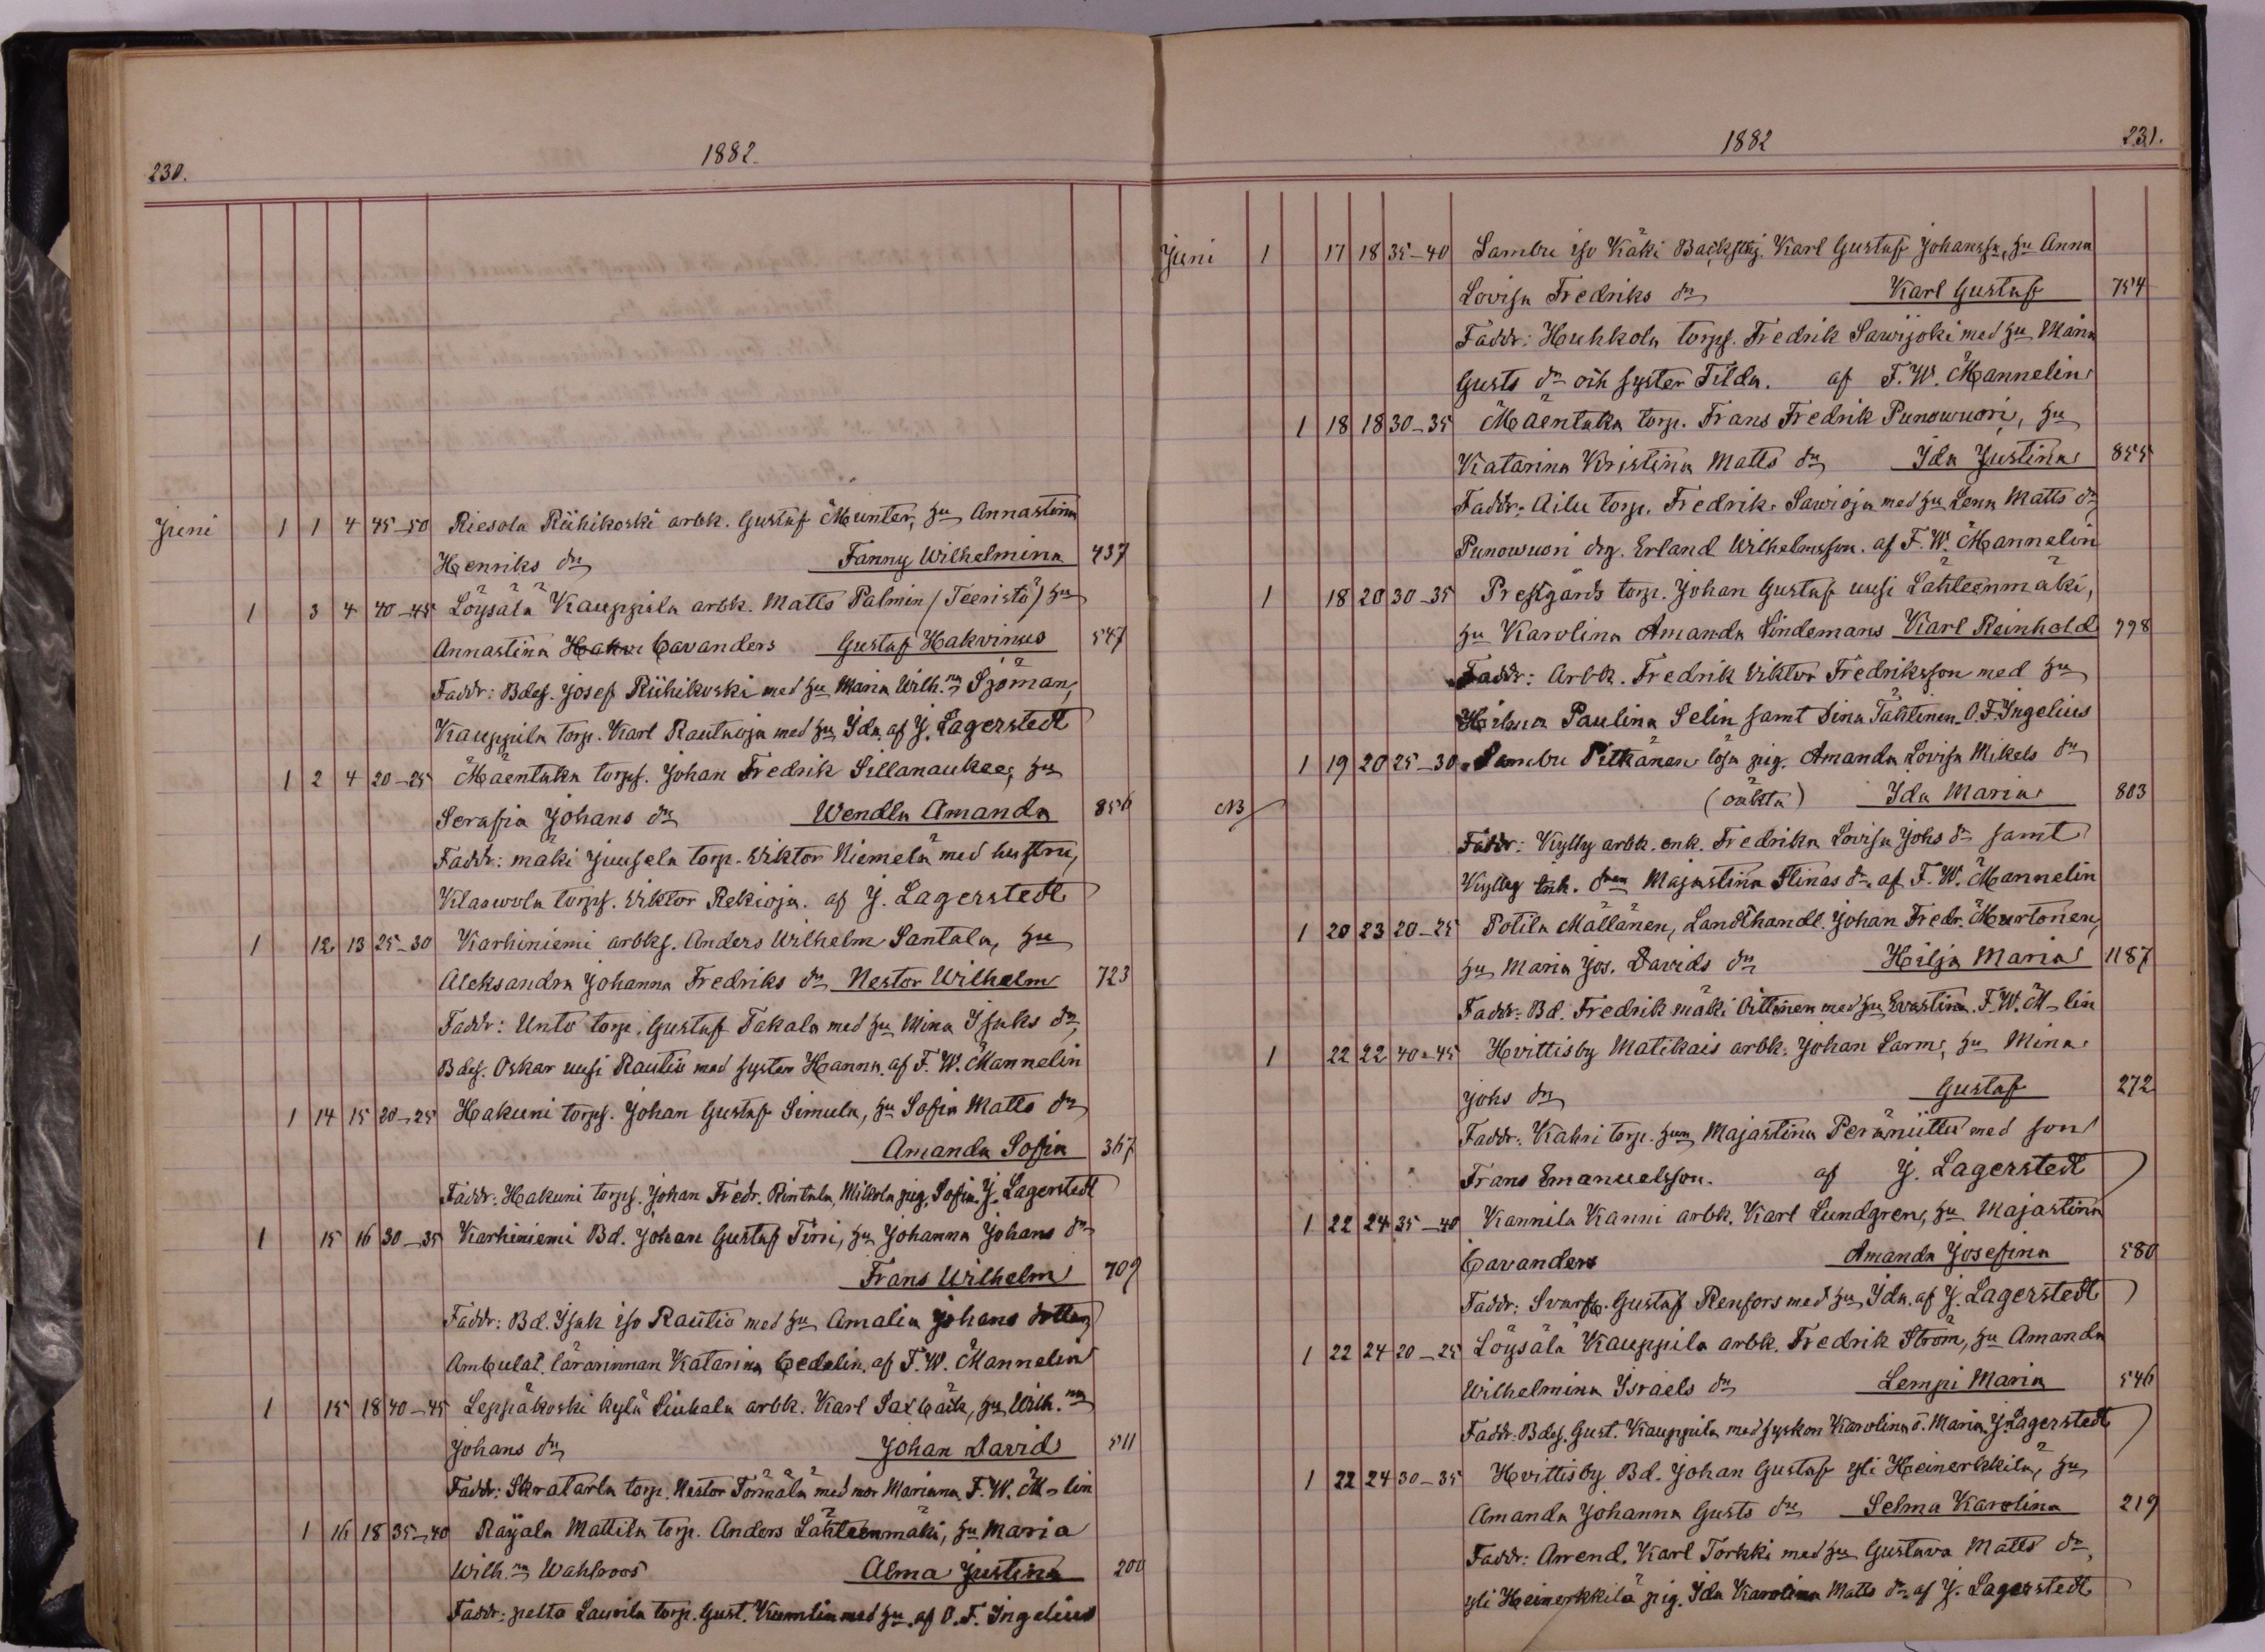 230.
1882.
Juni 1 1 4 45-50 Riesola Riihikoski arbk. Gustaf Munter, hu Annastina
Henriks dr Fanny Wilhelmina 437
1 3 4 40-45 Löysälä Kauppila arbk. Matts Palmin (Teeristö) hu
Annastina Cavanders Gustaf Hakvinus 547
Faddr: Bdes. Josef Riihikoski med hu Maria Wilh.na Sjöman,
Kauppila torp. Karl Rautaoja med hu Ida. af J. Lagerstedt
1 2 4 20-25 Mäentaka torps. Johan Fredrik Sillanaukee, hu
Serafia Johans dr Wendla Amanda 856
Faddr: mäki Juusela torp. Viktor Niemelä med hustru,
Klaavola torps. Viktor Rekioja. af J. Lagerstedt
1 12 13 25-30 Karhiniemi arbks. Anders Wilhelm Santala, hu
Aleksandra Johanna Fredriks dr Nestor Wilhelm 723
Faddr: Unto torp. Gustaf Takala med hu Mina Isaks dr,
Bdes. Oskar uusi Rautio med syster Hanna. af F. W. Mannelin
1 14 15 20-25 Hakuni torps. Johan Gustaf Simula, hu Sofia Matts dr
Amanda Sofia 367
Faddr: Hakuni torps. Johan Fredr. Rintala, Mikola pig. Sofia. J. Lagerstedt
1 15 16 30-35 Karhiniemi Bd. Johan Gustaf Tirri, hu Johanna Johans dr
Frans Wilhelm 709
Faddr: Bd. Isak iso Rautio med hu Amalia Johans dotter,
Ambulat. lärarinnan Katarina Cedelin. af F. W. Mannelin
1 15 18 40-45 Leppäkoski kylä Liuhala arbk. Karl Saxbäck, hu Wilh.na
Johans dr Johan David 511
Faddr: Skratarla torp. Nestor Törmälä med mor Mariana. F. W. M-lin
1 16 18 35-40 Raijala Mattila torp. Anders Lähteenmäki, hu Maria
Wilh.na Wahlroos Alma Justina 200
Faddr: pelto Laurila torp. Gust. Kumlin med hu. af O. F. Ingelius
1882
231.
Juni 1 17 18 35-40 Sambu iso Käki Backstuj. Karl Gustaf Johanss., hu Anna
Lovisa Fredriks dr Karl Gustaf 754
Faddr: Huhkola torps. Fredrik Sawijoki med hu Maria
Gusts dr och syster Tilda. af F. W. Mannelin
1 18 18 30-35 Mäentaka torp. Frans Fredrik Punowuori, hu
Katarina Kristina Matts dr Ida Justina 855
Faddr: Ailu torp. Fredrik Sawioja med hu Lena Matts dr,
Punowuori drg. Erland Wilhelmsson. af F. W. Mannelin
1 18 20 30-35 Prestgårds torp. Johan Gustaf uusi Lähteenmäki,
hu Karolina Amanda Lindemans Karl Reinhold 998
Faddr: Arbk. Fredrik Viktor Fredriksson med hu
Hilma Paulina Selin samt Sina Tähtinen. O. F. Ingelius
1 19 20 25-30 Sambu Pitkänen lösa pig. Amanda Lovisa Mikels dr
NB (oäkta) Ida Maria 803
Faddr: Kylly arbk. enk. Fredrika Lovisa Johs dr samt
Kylly Majastina Stinas dr. af F. W. Mannelin
1 20 23 20-25 Potila Mällänen, Landthandl. Johan Fredr. Murtonen,
hu Maria Jos. Davids dr Hilja Maria 1187
Faddr: Bd. Fredrik mäki Oittinen med hu Evastina. F. W. M-lin
1 22 22 40-45 Hvittisby Matikais arbk. Johan Sarm, hu Mina
Johs dr Gustaf 272
Faddr: Kahri torp. hun Majastina Peräniittu med son
Frans Emanuelsson. af J. Lagerstedt
1 22 24 35-40 Kannila Kanni arbk. Karl Lundgren, hu Majastina
Cavanders Amanda Josefina 580
Faddr: Svarfv. Gustaf Renfors med hu Ida. af J. Lagerstedt
1 22 24 20-25 Löysälä Kauppila arbk. Fredrik Ström, hu Amanda
Wilhelmina Israels dr Lempi Maria 546
Faddr: Bdes. Gust. Kauppila med syskon Karolina o. Maria. J. Lagerstedt
1 22 24 30-35 Hvittisby Bd. Johan Gustaf yli Heinerkkilä, hu
Amanda Johanna Gusts dr Selma Karolina 219
Faddr: Arrend. Karl Torkki med hu Gustava Matts dr,
yli Heinerkkilä pig. Ida Karolina Matts dr. af J. Lagerstedt